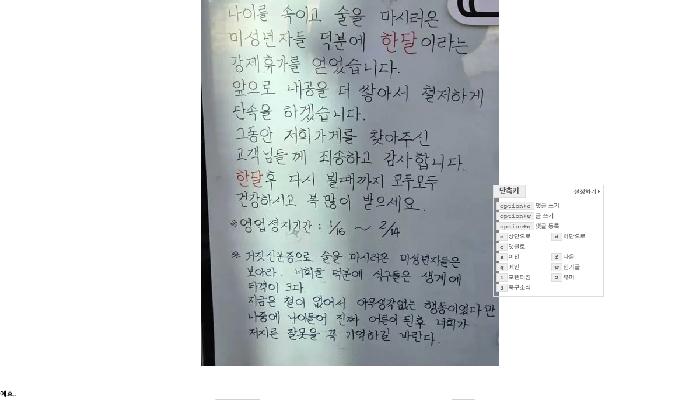 나이를 속이고 술을 마시러온
미성년자들 덕분에 한달이라는
강제휴가를 얻었습니다.
앞으로 내공을 더 쌓아서 철저하게
단속을 하겠습니다.
그동안 저희가게를 찾아주신
고객님들께 죄송하고 감사합니다.
한달후 다시 뵐때까지 모두모두
건강하시고 복 많이 받으세요.
*영업정지기간 : 1/16 ~ 2/14
* 거짓신분증으로 술을 마시러온 미성년자들은
보아라. 너희들 덕분에 식구들은 생계에
타격이 크다
지금은 철이 없어서 아무생각없는 행동이었다만
나중에 나이들어 진짜 어른이 된후 너희가
저지른 잘못을 꼭 기억하길 바란다.
단축키
설정하기
option+c 댓글 쓰기
option+w 글 쓰기
option+r 댓글 등록
상단으로
하단으로
댓글로
이전
다음
인기글
유머
예요..